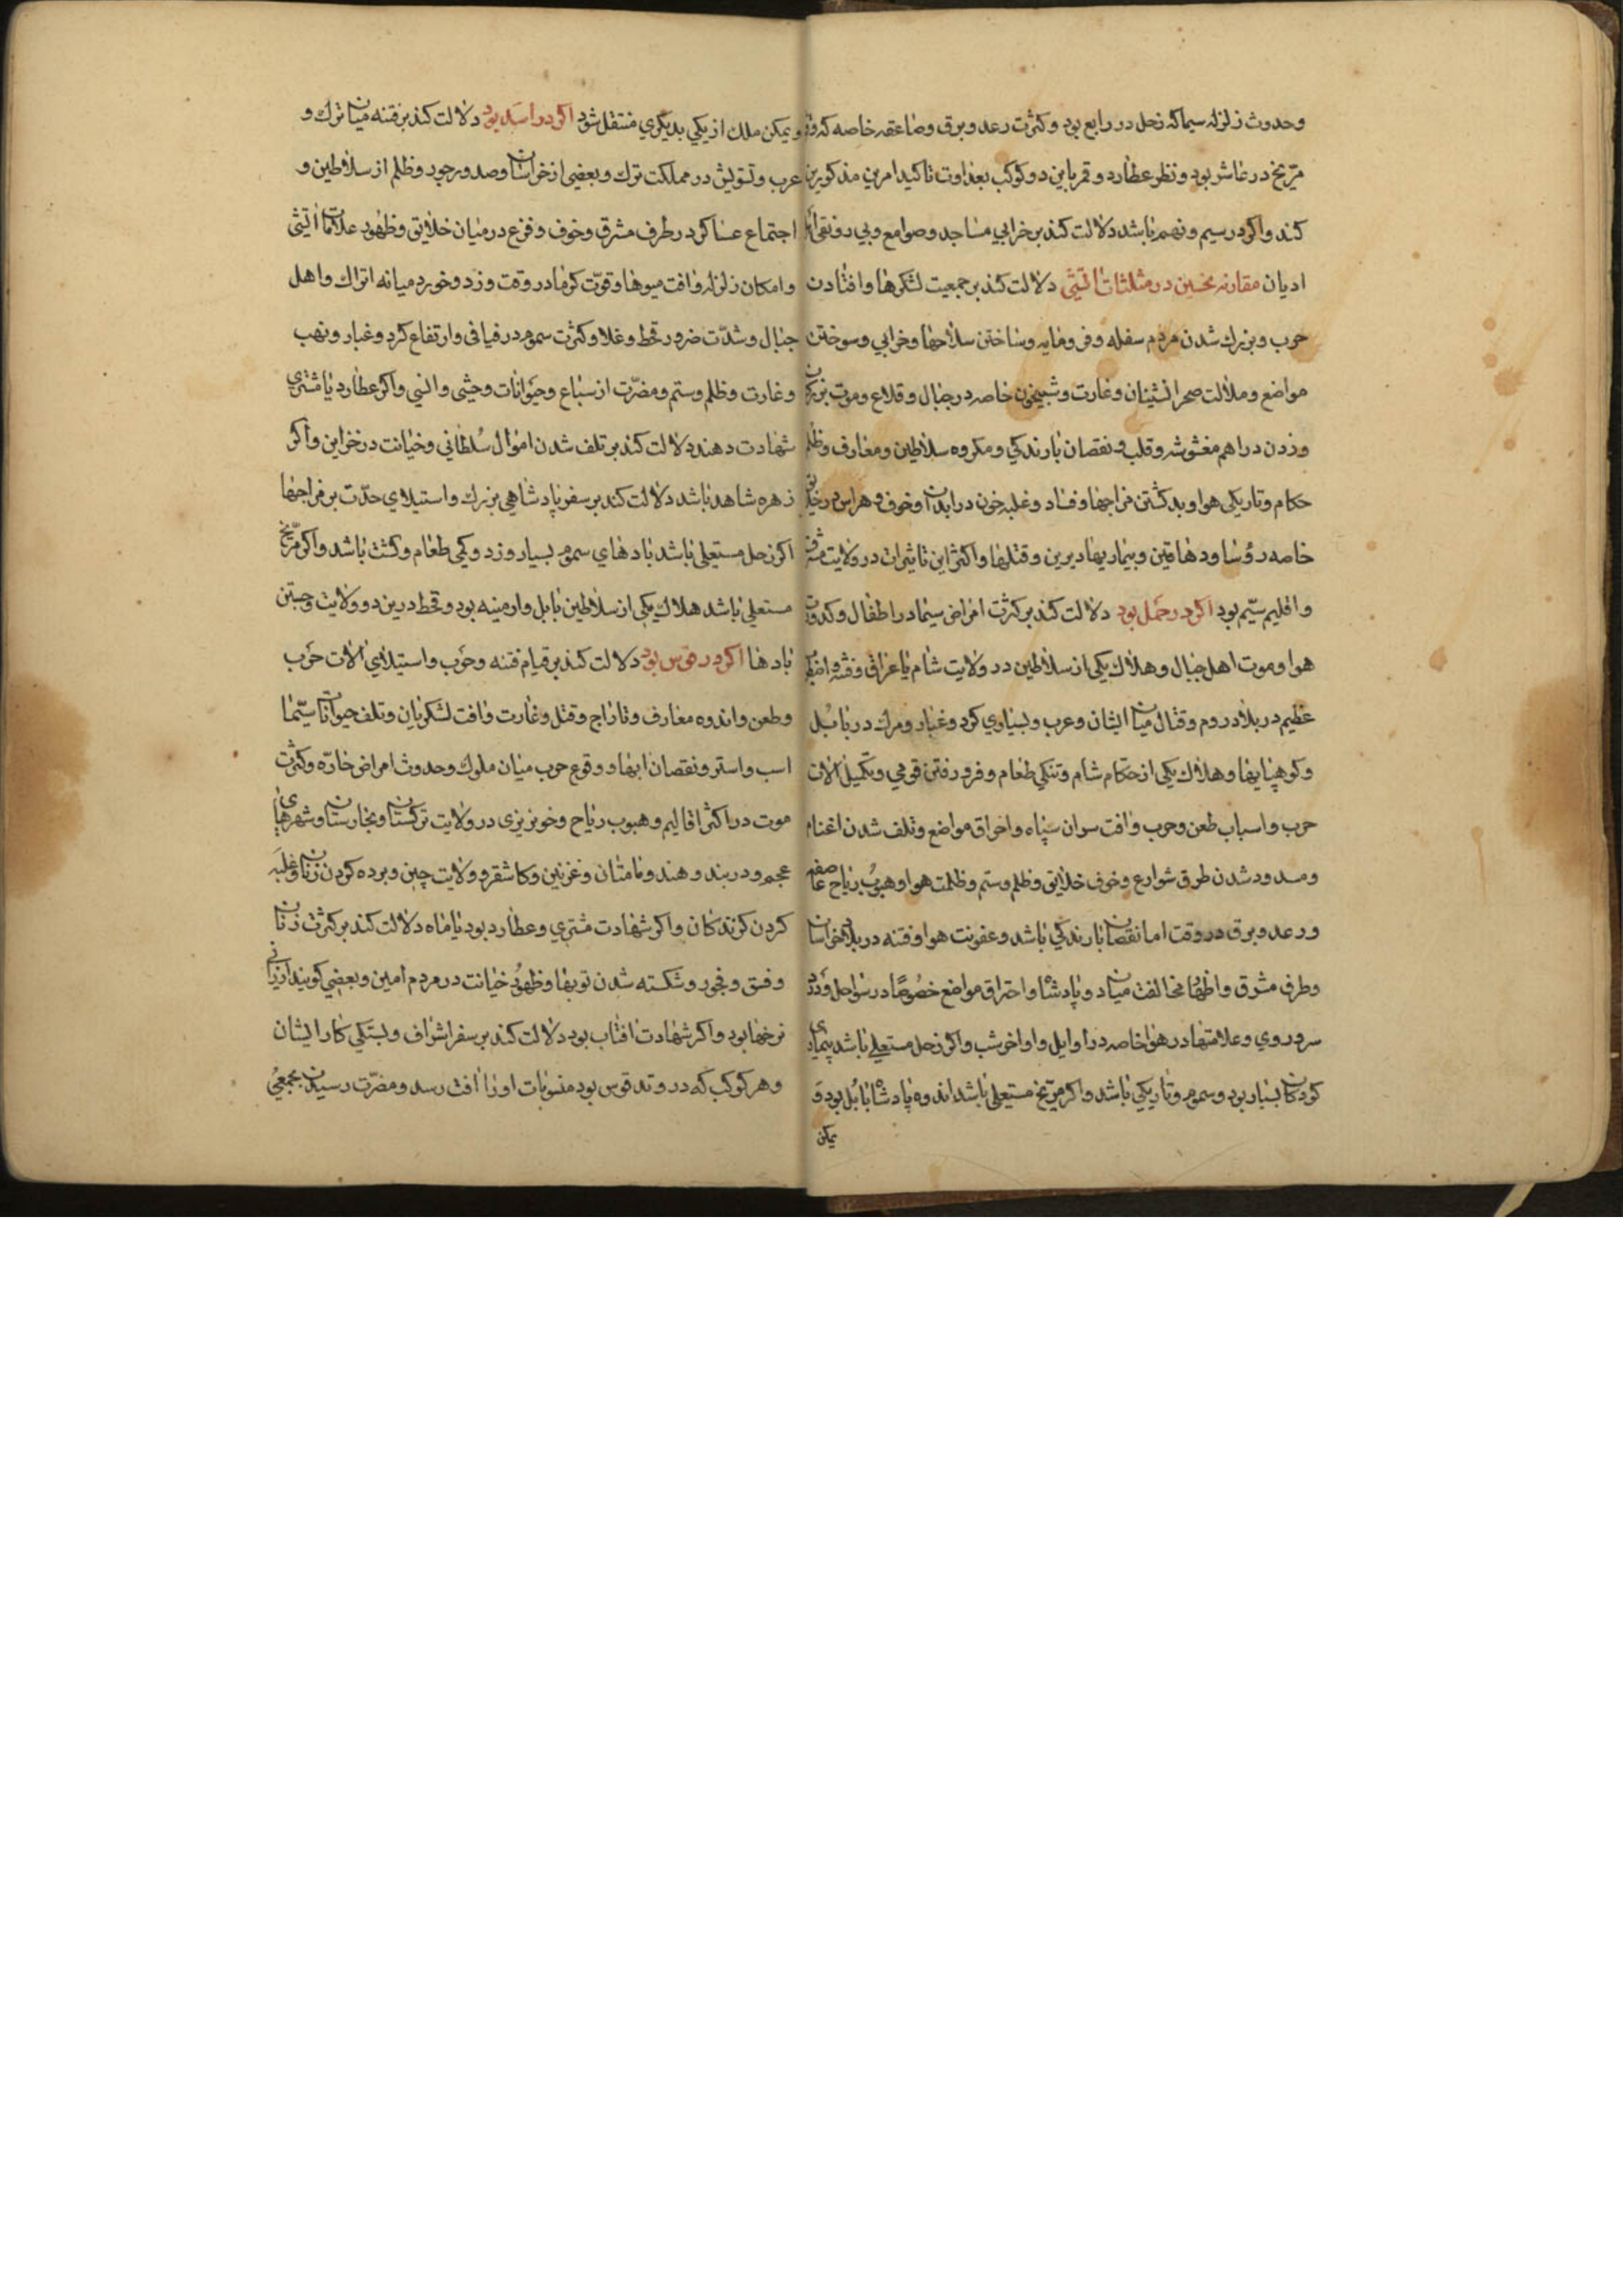 وحدوث زلزله سیما که زحل در رابع بود و کثرت رعد و برق و صاعقه خاصه که
مریخ در عاشر بود و نظر عطارد و قمر باین دو کوکب بعداوت تاکید امرین مذکورین
کند و اکر در سیم و نهم باشد دلالت کند بر خرابی مساجد و صوامع و بی رونقی
ادیان مقارنه نحسین در مثلثات اتشی دلالت کند بر جمعیت لشکرها و افتادن
حرب و بزرک شدن مردم سفله و فرومایه و ساختن سلاحها و خرابی و سوختن
مواضع و ملالت صحرانشینان و غارت و شبیخون خاصه در جبال و قلاع و موت بزرکان
و زدن دراهم مغشوشه و قلب و نقصان بارندکی و مکروه سلاطین و معارف و ظلم
حکام و تاریکی هوا و بد کشتن مزاجها و فساد و غلبه خون در ابدان و خوف و هراس در خلایق
خاصه رؤسا و دهاقین و بیماریها دیرین و قتلها و اکثر این تاثیرات در ولایت مشرق
و اقلیم سیم بود اکر در حمل بود دلالت کند بر کثرت امراض سیما در اطفال و کدورت
هوا و موت اهل جبال و هلاک یکی از سلاطین در ولایت شام یا عراق و فتنه و اضطراب
عظیم در بلاد روم و قتال میان ایشان و عرب و بسیاری کرد و غبار و مرک در بابل
و کوهپایها و هلاک یکی از حکام شام و تنکی طعام و فرو رفتن قومی و تکمیل الات
حرب و اسباب طعن و حرب و افت سران سپاه و احراق مواضع و تلف شدن اغنام
و مسدود شدن طرق شوارع و خوف خلایق و ظلم و ستم و ظلمت هوا و هبوب ریاح عاصفه
و رعد و برق در وقت اما نقصان بارندکی باشد و عفونت هوا و فتنه در بلاد خراسان
و طرف مشرق و اظهار مخالفت میان دو پادشاه و احتراق مواضع خصوصا در سواحل و
سرد روی و علامتها در هوا خاصه در اوایل و اواخر شب و اکر زحل مستعلی باشد بیماری
کودکان بسیار بود و سموم و تاریکی باشد و اکر مریخ مستعلی باشد اندوه پادشاه بابل بود و
یمکن
و یمکن ملک از یکی بدیکری منتقل شود اکر در اسد بود دلالت کند بر فتنه میان ترک و
عرب و تشویش در مملکت ترک و بعضی از خراسان و صدور جور و ظلم از سلاطین و
اجتماع عساکر در طرف مشرق و خوف و فزع در میان خلایق و ظهور علامات اتشی
و امکان زلزله و افت میوها و قوت کرما در وقت و زد و خورد میانه اتراک و اهل
جبال و شدت ضرر و قحط و غلا و کثرت سموم در فیافی و ارتفاع کرد و غبار و نهب
و غارت و ظلم و ستم و مضرت از سباع و حیوانات وحشی و انسی و اکر عطارد یا مشتری
شهادت دهند دلالت کند بر تلف شدن اموال سلطانی و خیانت در خزاین و اکر
زهره شاهد باشد دلالت کند بر سفر پادشاهی بزرک و استیلای حدت بر مزاجها
اکر زحل مستعلی باشد بادهای سموم بسیار وزد و کمی طعام و کشت باشد و اکر مریخ
مستعلی باشد هلاک یکی از سلاطین بابل و ارمنیه بود و قحط درین دو ولایت و جستن
بادها اکر در قوس بود دلالت کند بر قیام فتنه و حرب و استیلای الات حرب
و طعن و اندوه معارف و تاراج و قتل و غارت و افت لشکریان و تلف حیوانات سیما
اسب و استر و نقصان ابها و وقوع حرب میان ملوک و حدوث امراض حاره و کثرت
موت در اکثر اقالیم و هبوب ریاح و خونریزی در ولایت ترکستان و تخارستان و شهرهای
عجم و دربند و هند و بامیان و غزنین و کاشغر و ولایت چین و برده کردن زنان و غلبه
کردن کزندکان و اکر شهادت مشتری و عطارد بود یا ماه دلالت کند بر کثرت زنان
و فسق و فجور و شکسته شدن توبها و ظهور خیانت در مردم امین و بعضی کویند ارزانی
نرخها بود و اکر شهادت افتاب بود دلالت کند بر سفر اشراف و بستکی کار ایشان
و هر کوکب که در وتد قوس بود منسوبات او را افت رسد و مضرت رسیدن بجمعی